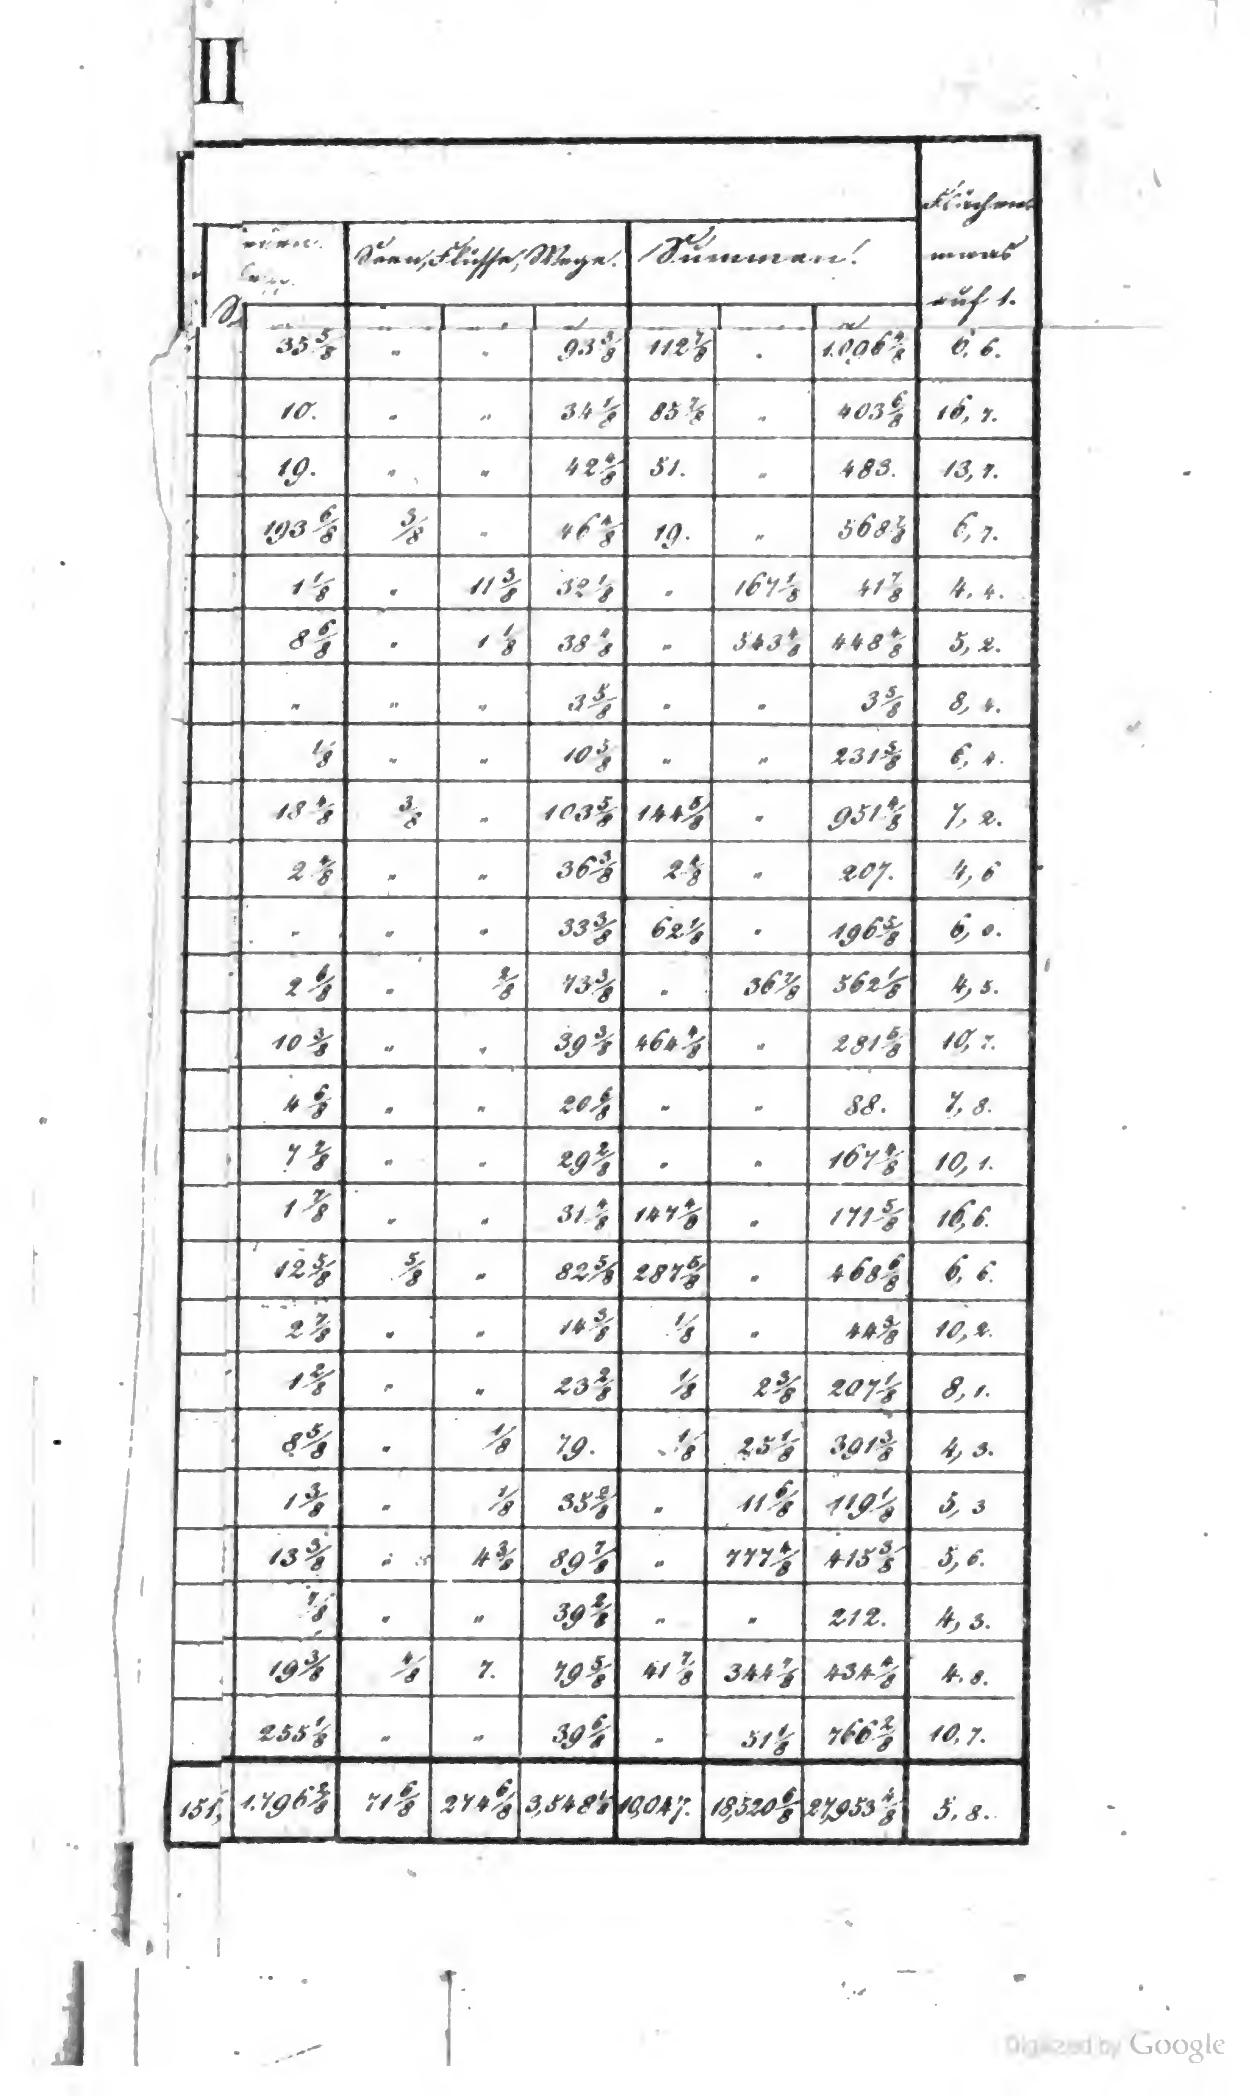 II
Seen, Flüsse, Wege. Summen. Flächen
auf 1.
35 5/8 " " 93 3/8 112 7/8 " 1.096 4/8 6, 6.
10. " " 34 1/8 85 7/8 " 403 6/8 16, 7.
19. " " 42 4/8 51. " 483. 13, 7.
193 6/8 3/8 " 46 4/8 19. " 568 7/8 6, 7.
1 1/8 " 11 3/8 32 1/8 " 167 1/8 41 7/8 4, 4.
8 6/8 " 1 1/8 38 4/8 " 543 4/8 448 4/8 5, 2.
" " " 3 5/8 " " 3 5/8 8, 4.
1/8 " " 10 5/8 " " 231 5/8 6, 4.
18 4/8 3/8 " 103 5/8 144 5/8 " 951 4/8 7, 2.
2 4/8 " " 36 3/8 2 4/8 " 207. 4, 6
" " " 33 3/8 62 1/8 " 196 5/8 6, 0.
2 6/8 " 2/8 73 3/8 " 36 7/8 562 1/8 4, 5.
10 3/8 " " 39 3/8 464 4/8 " 281 5/8 10, 7.
4 6/8 " " 20 6/8 " " 88. 7, 8.
7 2/8 " " 29 2/8 " " 167 4/8 10, 1.
1 7/8 " " 31 4/8 147 4/8 " 171 5/8 16, 6.
12 5/8 5/8 " 82 5/8 287 5/8 " 468 6/8 6, 6.
2 7/8 " " 14 3/8 1/8 " 44 3/8 10, 2.
1 2/8 " " 23 2/8 1/8 2 3/8 207 1/8 8, 1.
8 5/8 " 1/8 79. 1/8 25 1/8 391 3/8 4, 3.
1 3/8 " 1/8 35 2/8 " 11 6/8 119 1/8 5, 3
13 3/8 " 4 3/8 89 7/8 " 777 4/8 415 3/8 5, 6.
7/8 " " 39 2/8 " " 212. 4, 3.
19 3/8 4/8 7. 79 5/8 41 7/8 344 7/8 434 4/8 4, 8.
255 1/8 " " 39 6/8 " 51 1/8 766 2/8 10, 7.
151, 1.796 2/8 71 6/8 274 6/8 3,548 1/8 10,047. 18,520 6/8 27,953 4/8 5, 8.
Digitized by Google